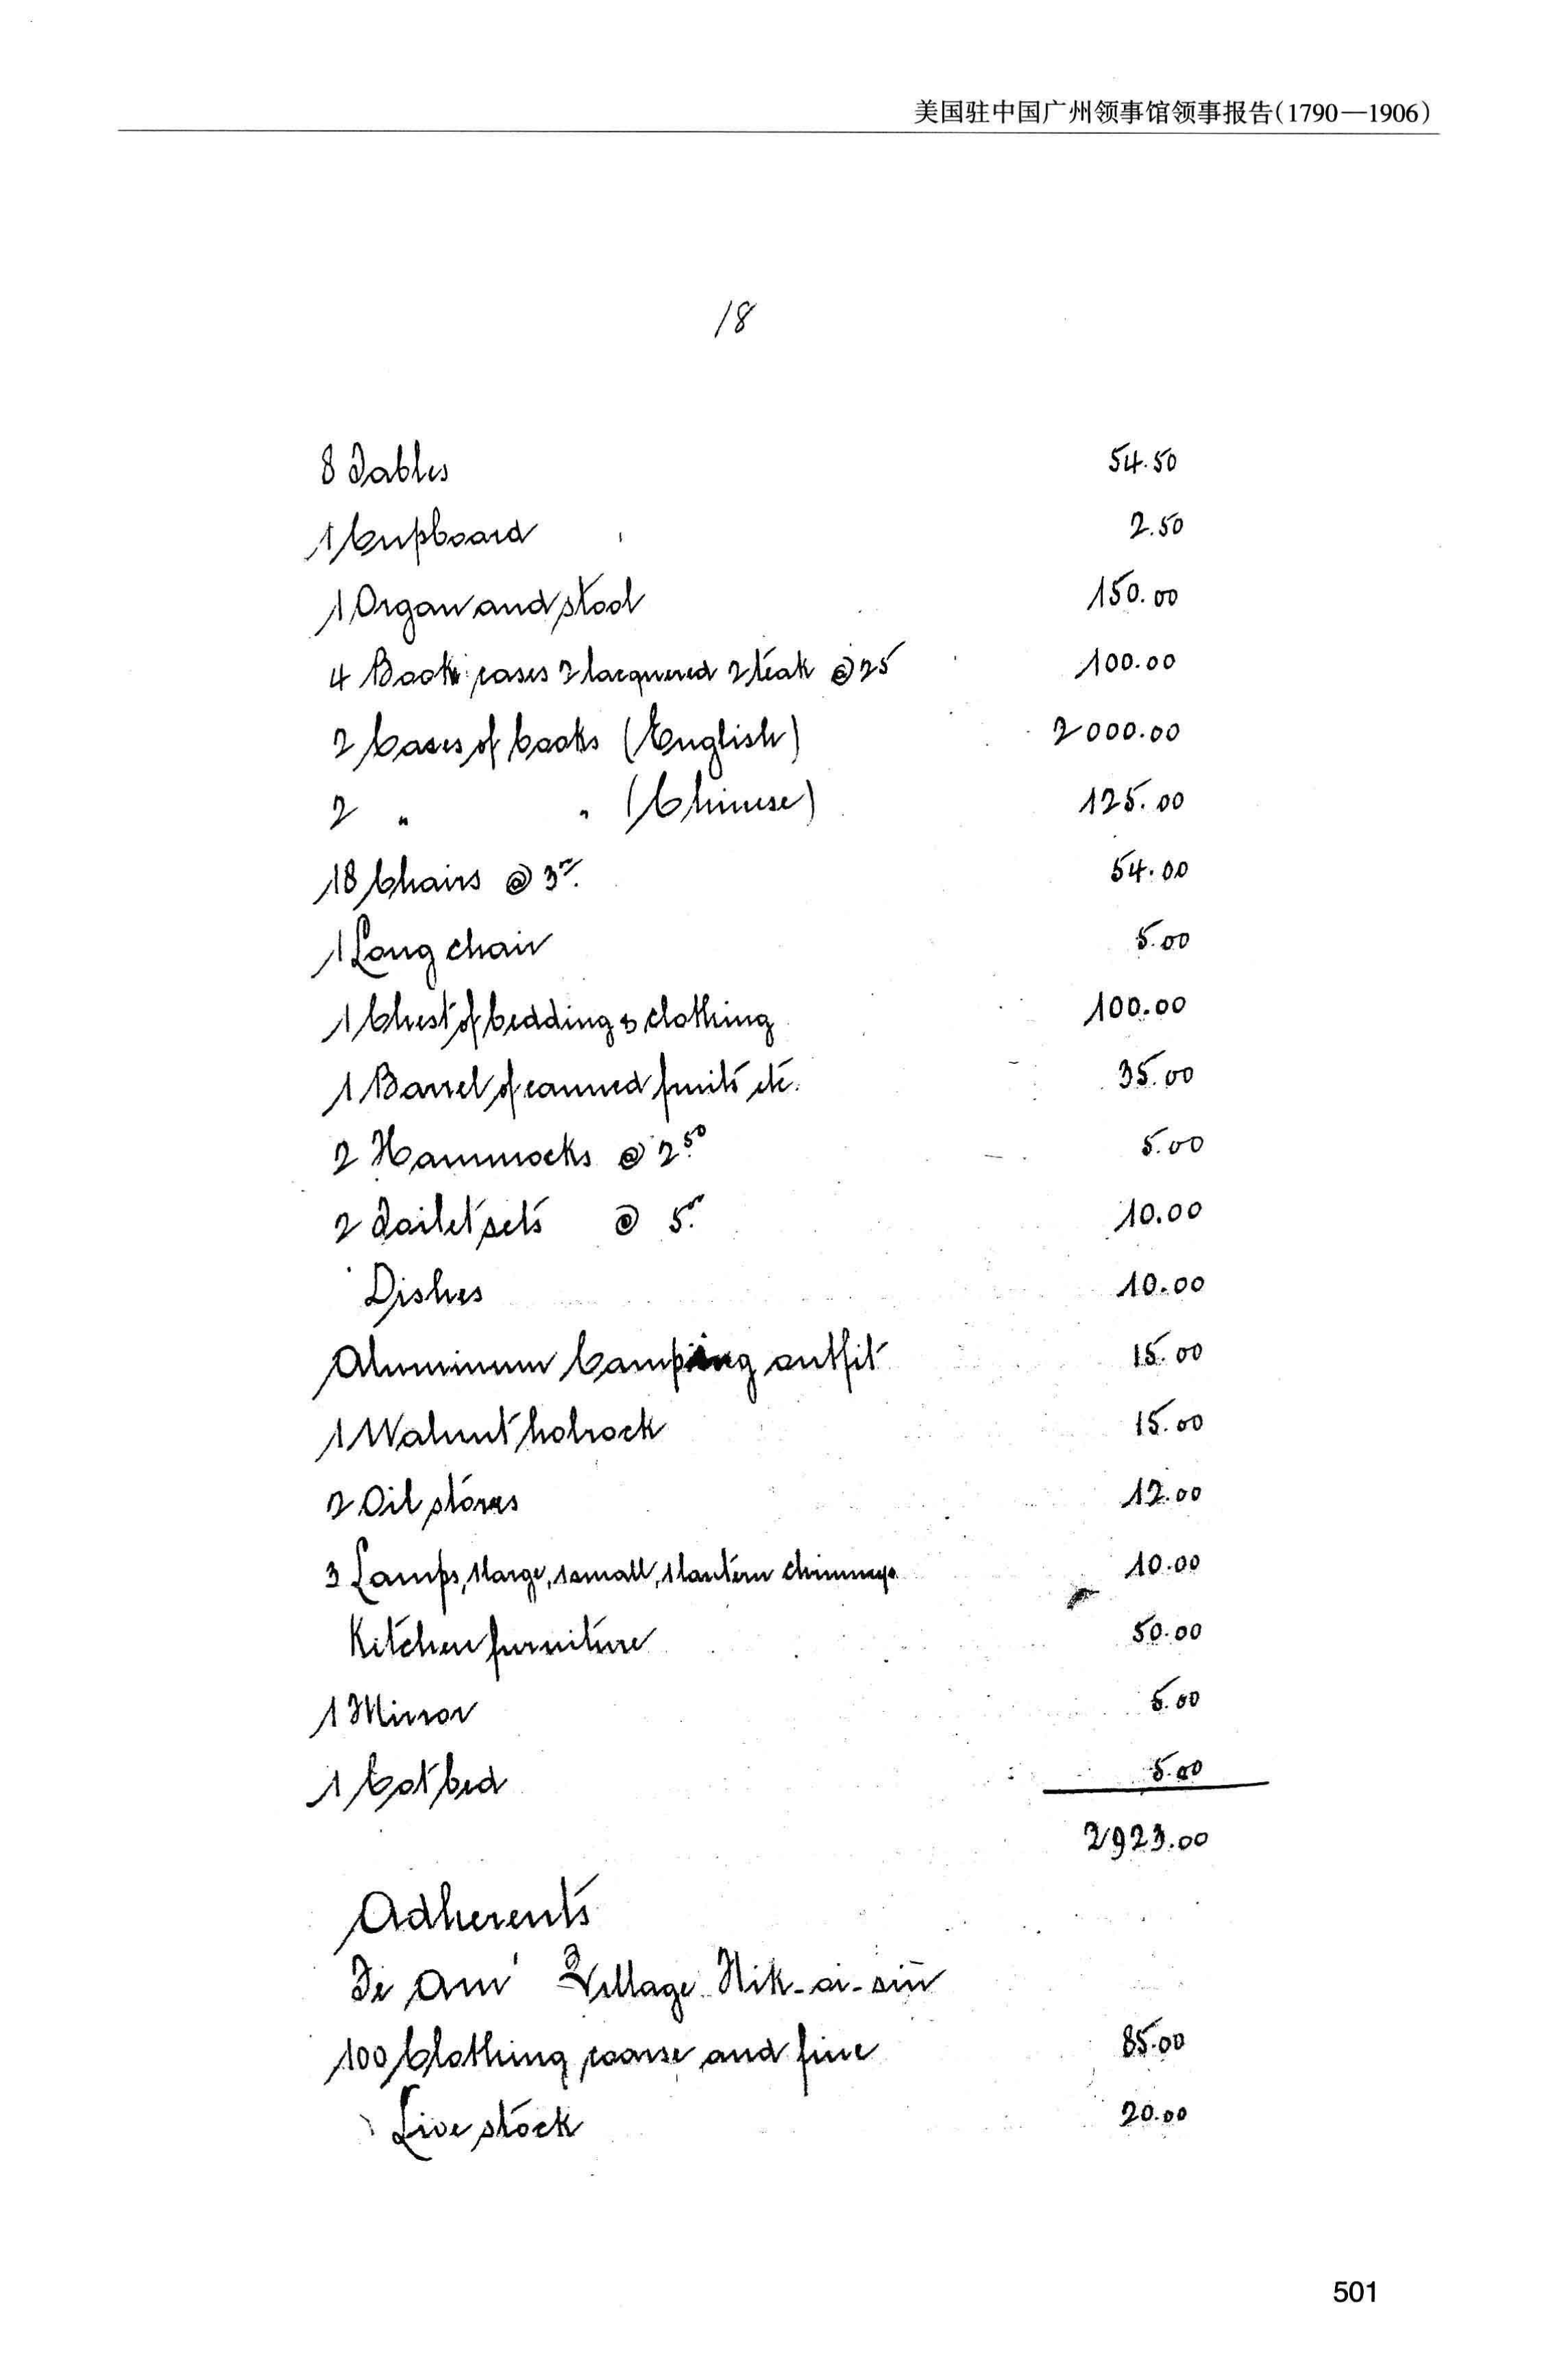 美国驻中国广州领事馆领事报告(1790—1906)
18
8 Tables 54.50
1 Cupboard 2.50
1 Organ and stool 150.00
4 Book cases 2 lacquered 2 teak @ 25 100.00
2 Cases of books (English) 2000.00
2 " " (Chinese) 125.00
18 Chairs @ 3.00 54.00
1 Long chair 5.00
1 Chest of bedding & clothing 100.00
1 Barrel of canned fruits etc. 35.00
2 Hammocks @ 2.50 5.00
2 Toilet sets @ 5.00 10.00
Dishes 10.00
Aluminum Camping outfit 15.00
1 Walnut 15.00
2 Oil stoves 12.00
3 Lamps, 1 large, 1 small, 1 lantern chimneys 10.00
Kitchen furniture 50.00
1 Mirror 5.00
1 Cot bed 5.00
2923.00
Adherents
Te Am Village Nik-ai-sin
100 Clothing coarse and fine 85.00
Live stock 20.00
501